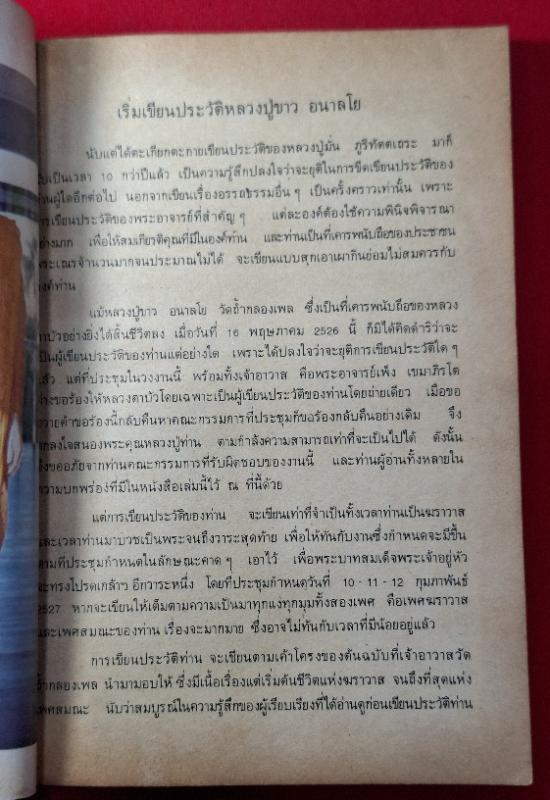 เริ่มเขียนประวัติหลวงปู่ขาว อนาลโย
นับแต่ได้ตะเกียกตะกายเขียนประวัติของหลวงปู่มั่น ภูริทัตตเถระ มาก็
นับเป็นเวลา 10 กว่าปีแล้ว เป็นความรู้สึกปลงใจว่าจะยุติในการขีดเขียนประวัติของ
ท่านผู้ใดอีกต่อไป นอกจากเขียนเรื่องอรรถธรรมอื่น ๆ เป็นครั้งคราวเท่านั้น เพราะ
การเขียนประวัติของพระอาจารย์ที่สำคัญ ๆ แต่ละองค์ต้องใช้ความพินิจพิจารณา
อย่างมาก เพื่อให้สมเกียรติคุณที่มีในองค์ท่าน และท่านเป็นที่เคารพนับถือของประชาชน
พระเณรจำนวนมากจนประมาณไม่ได้ จะเขียนแบบสุกเอาเผากินย่อมไม่สมควรกับ
องค์ท่าน
แม้หลวงปู่ขาว อนาลโย วัดถ้ำกลองเพล ซึ่งเป็นที่เคารพนับถือของหลวง
ตาบัวอย่างยิ่งได้สิ้นชีวิตลง เมื่อวันที่ 16 พฤษภาคม 2526 นี้ ก็มิได้คิดดำริว่าจะ
เป็นผู้เขียนประวัติของท่านแต่อย่างใด เพราะได้ปลงใจว่าจะยุติการเขียนประวัติใด ๆ
แล้ว แต่ที่ประชุมในวงงานนี้ พร้อมทั้งเจ้าอาวาส คือพระอาจารย์เพ็ง เขมาภิรโต
ต่างขอร้องให้หลวงตาบัวโดยเฉพาะเป็นผู้เขียนประวัติของท่านโดยถ่ายเดียว เมื่อขอ
ถวายคำขอร้องนี้กลับคืนหาคณะกรรมการที่ประชุมก็ขอร้องกลับคืนอย่างเดิม จึง
ตกลงใจสนองพระคุณหลวงปู่ท่าน ตามกำลังความสามารถเท่าที่จะเป็นไปได้ ดังนั้น
จึงขออภัยจากท่านคณะกรรมการที่รับผิดชอบของงานนี้ และท่านผู้อ่านทั้งหลายใน
ความบกพร่องที่มีในหนังสือเล่มนี้ไว้ ณ ที่นี้ด้วย
แต่การเขียนประวัติของท่าน จะเขียนเท่าที่จำเป็นทั้งเวลาท่านเป็นฆราวาส
และเวลาท่านมาบวชเป็นพระจนถึงวาระสุดท้าย เพื่อให้ทันกับงานซึ่งกำหนดจะมีขึ้น
ตามที่ประชุมกำหนดในลักษณะคาด ๆ เอาไว้ เพื่อพระบาทสมเด็จพระเจ้าอยู่หัว
จะทรงโปรดเกล้าฯ อีกวาระหนึ่ง โดยที่ประชุมกำหนดวันที่ 10 - 11 - 12 กุมภาพันธ์
2527 หากจะเขียนให้เต็มตามความเป็นมาทุกแง่ทุกมุมทั้งสองเพศ คือเพศฆราวาส
และเพศสมณะของท่าน เรื่องจะมากมาย ซึ่งอาจไม่ทันกับเวลาที่มีน้อยอยู่แล้ว
การเขียนประวัติท่าน จะเขียนตามเค้าโครงของต้นฉบับที่เจ้าอาวาสวัด
ถ้ำกลองเพล นำมามอบให้ ซึ่งมีเนื้อเรื่องแต่เริ่มต้นชีวิตแห่งฆราวาส จนถึงที่สุดแห่ง
เพศสมณะ นับว่าสมบูรณ์ในความรู้สึกของผู้เรียบเรียงที่ได้อ่านดูก่อนเขียนประวัติท่าน